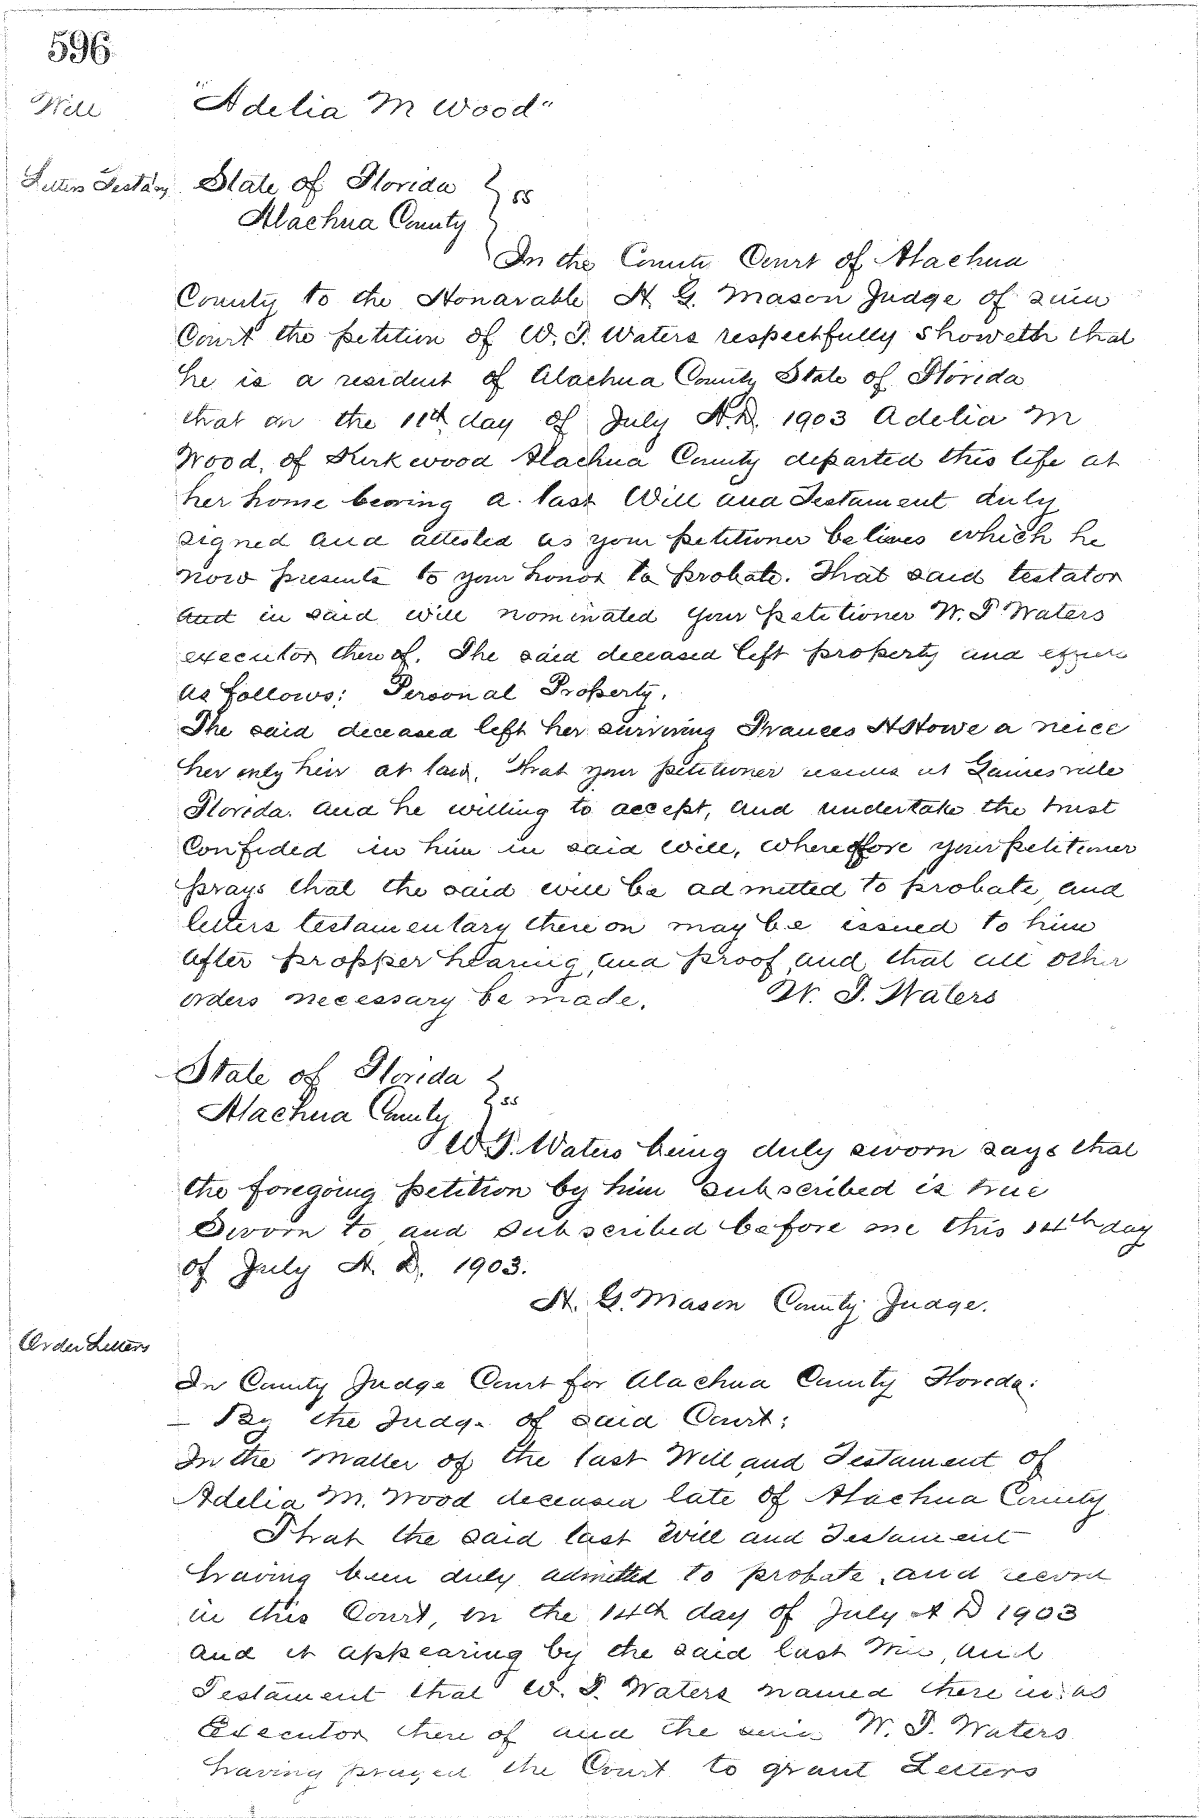 596
Will "Adelia M Wood"
Letters Testa'ry State of Florida } ss
Alachua County
In the County Court of Alachua
County to the Honarable H G. Mason Judge of said
Court the petition of W. T. Waters respectfully showeth that
he is a resident of Alachua County State of Florida
that on the 11th day of July A.D. 1903 Adelia M
Wood, of Kirkwood Alachua County departed this life at
her home bearing a last Will and Testament duly
signed and attested as your petitioner belives which he
now presents to your honor to probate. That said testator
and in said will nominated your petitioner W. T. Waters
executor there of. The said deceased left property and effects
as follows: Personal Property.
The said deceased left her surviving Frances H Howe a neice
her only heir at law, That your petitioner resides at Gainesville
Florida. and he willing to accept, and undertake the trust
Confided in him in said will, wherefore your petitioner
prays that the said will be admitted to probate, and
letters testamentary there on may be issued to him
after propper hearing, and proof, and that all other
orders necessary be made. W. T. Waters
State of Florida } ss
Alachua County
W. T. Waters being duly sworn says that
the foregoing petition by him subscribed is true
Sworn to and subscribed before me this 14th day
of July A. D. 1903.
H. G. Mason County Judge.
Order Letters
In County Judge Court for Alachua County Floreda:
– By the Judge of said Court:
In the Matter of the last Will and Testament of
Adelia M. Wood deceased late of Alachua County
That the said last Will and Testament
having been duly admitted to probate, and record
in this Court, on the 14th day of July A D 1903
and it appearing by the said last Will, and
Testament that W. T. Waters named there in as
Executor there of and the said W. T. Waters
having prayed the Court to grant Letters